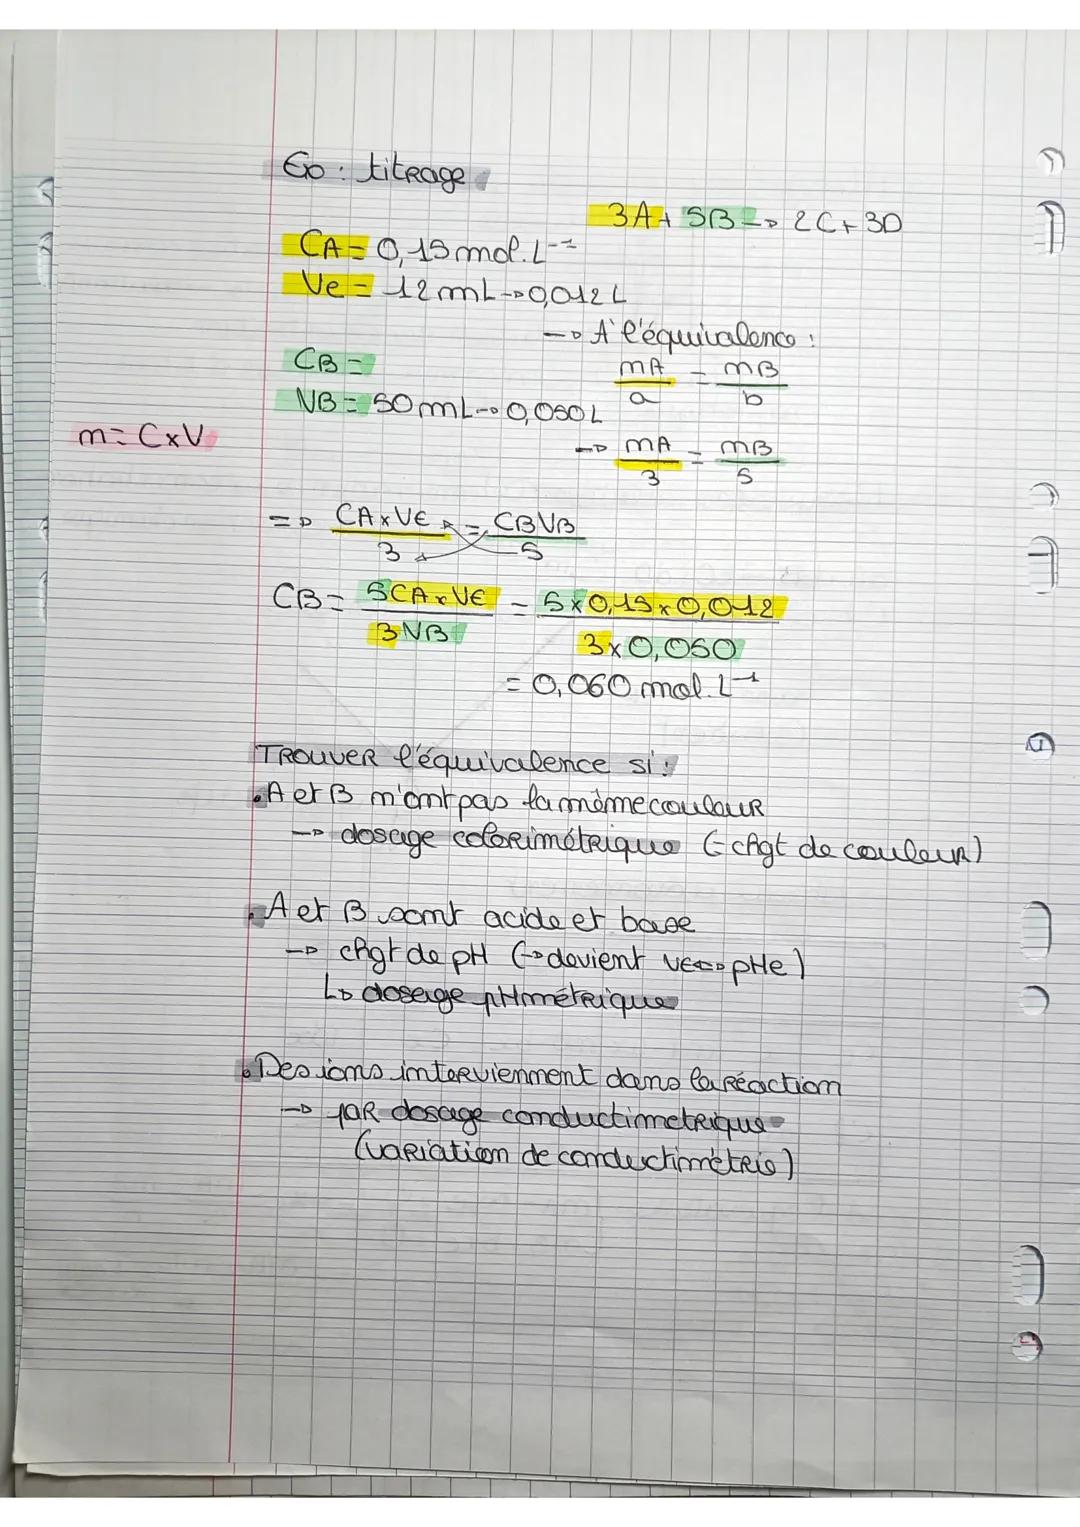 Exo : titrage
3A + 5B → 2C + 3D
CA = 0,15 mol.L⁻¹
Ve = 12 mL → 0,012 L
→ A l'équivalence :
CB =
nA/a = nB/b
VB = 50 mL → 0,050 L
n = C x V
→ nA/3 = nB/5
=> CA x VE / 3 = CBVB / 5
CB = 5CA x VE / 3VB = 5 x 0,15 x 0,012 / 3 x 0,050
= 0,060 mol.L⁻¹
TROUVER l'équivalence si :
• A et B n'ont pas la même couleur
→ dosage colorimétrique (= chgt de couleur)
• A et B sont acide et base
→ chgt de pH (→ devient pHe)
↳ dosage pHmétrique
• Des ions interviennent dans la réaction
→ par dosage conductimetrique
(variation de conductimétrie)